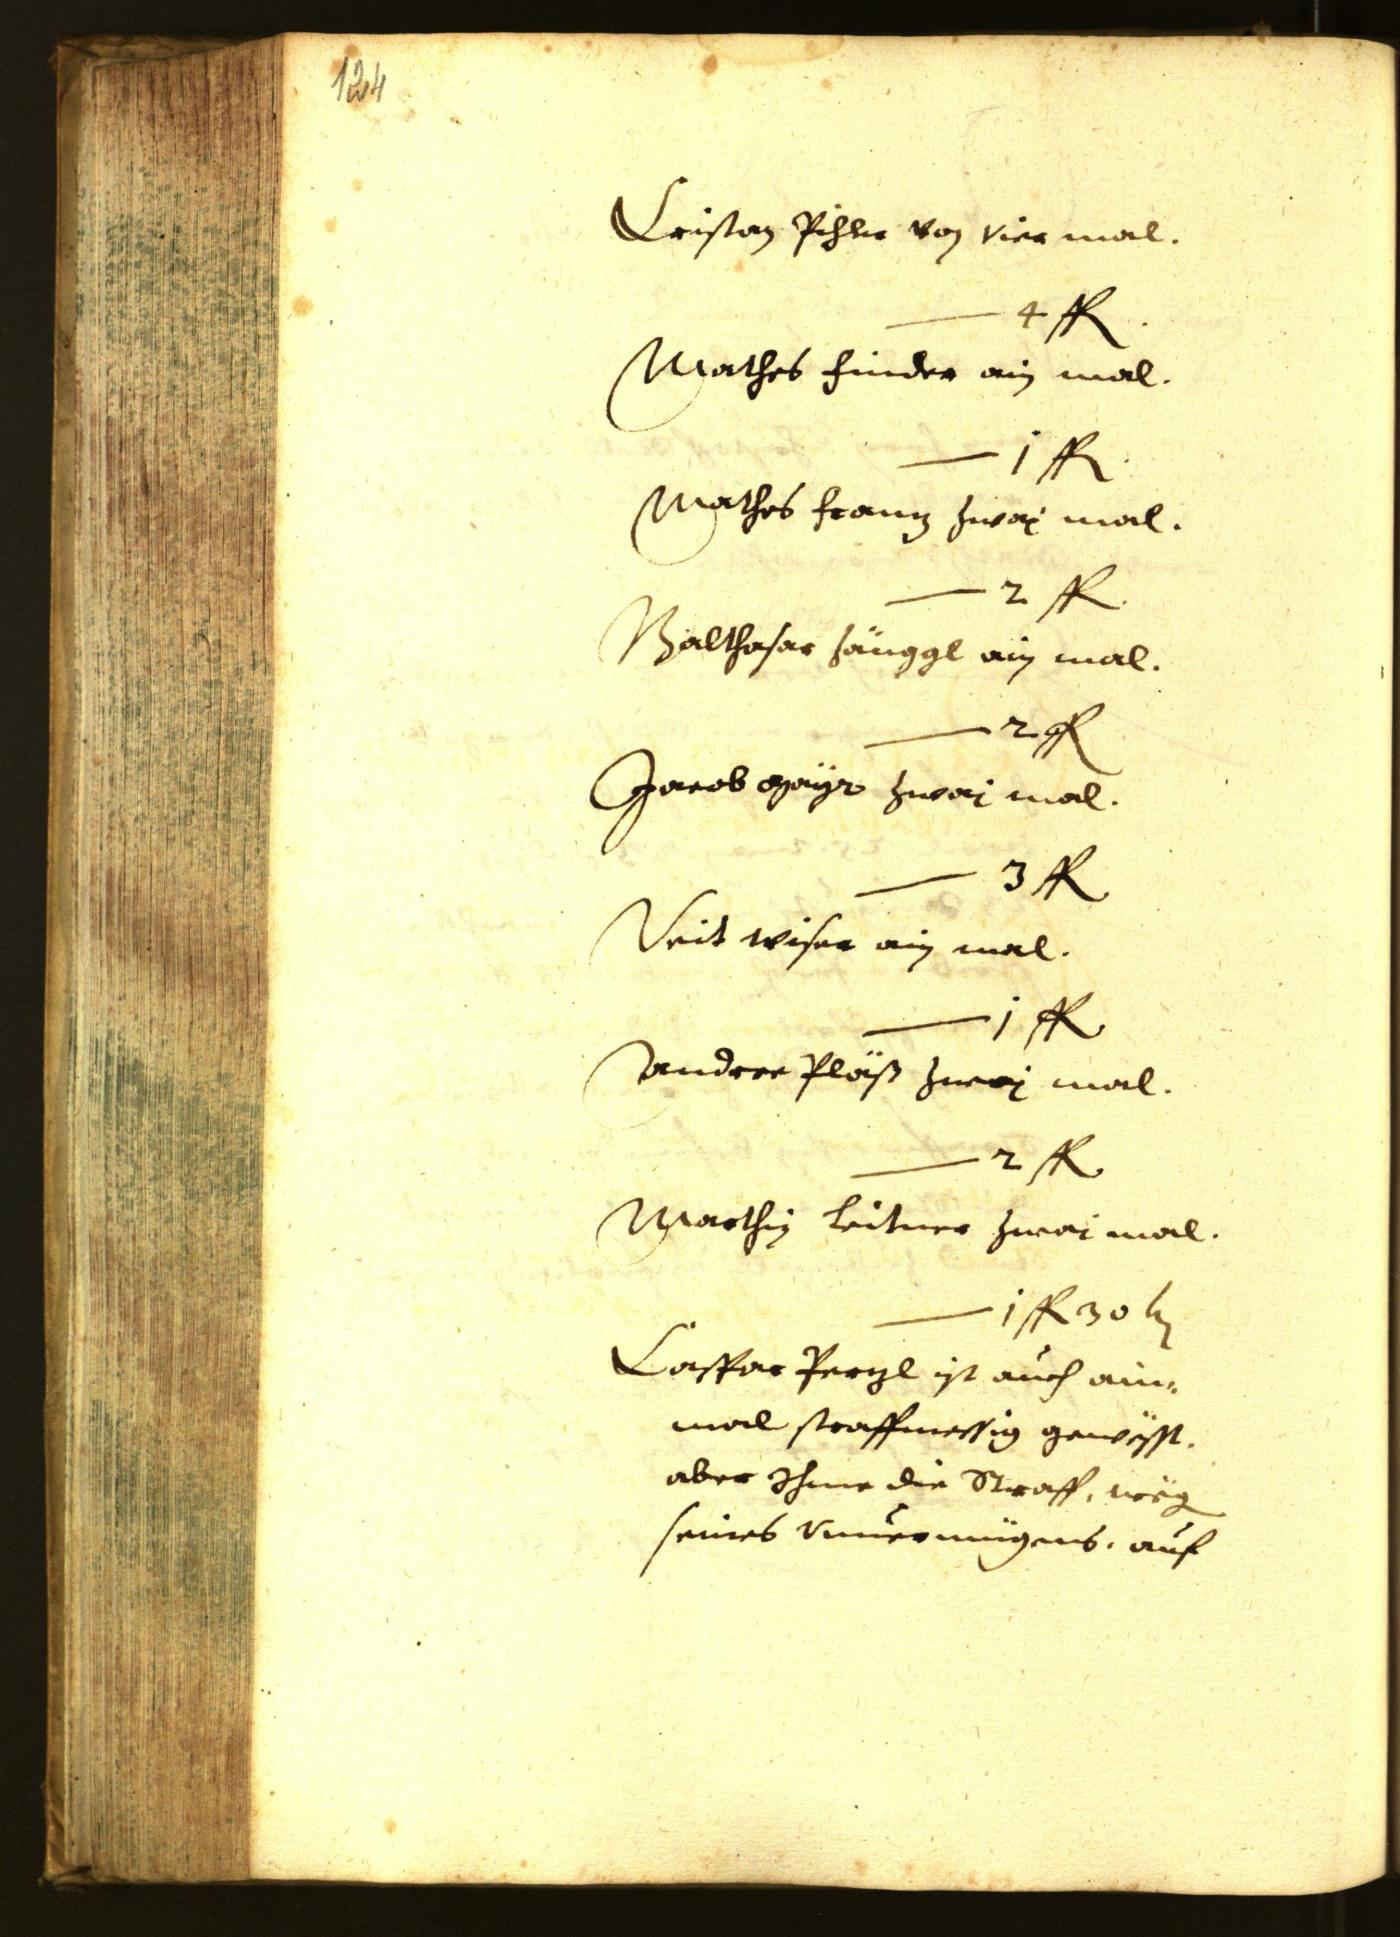 124
Cristan Pichler von vier mal.
— 4 fl
Mathes finder ain mal.
— 1 fl
Mathes franz zwaj mal.
— 2 fl
Balthasar Jänggl ain mal.
— 2 fl
Jacob Mayr zwaj mal.
— 3 fl
Veit wiser ain mal.
— 1 fl
Andree Pläß zwaj mal.
— 2 fl
Marthin leitner zwaj mal.
— 1 fl 30 kr
Caspar Pergl ist auch ain„
mal straffmessig gewësst.
aber Ihme die Straff, wëg
seines Vnuermügens. auf